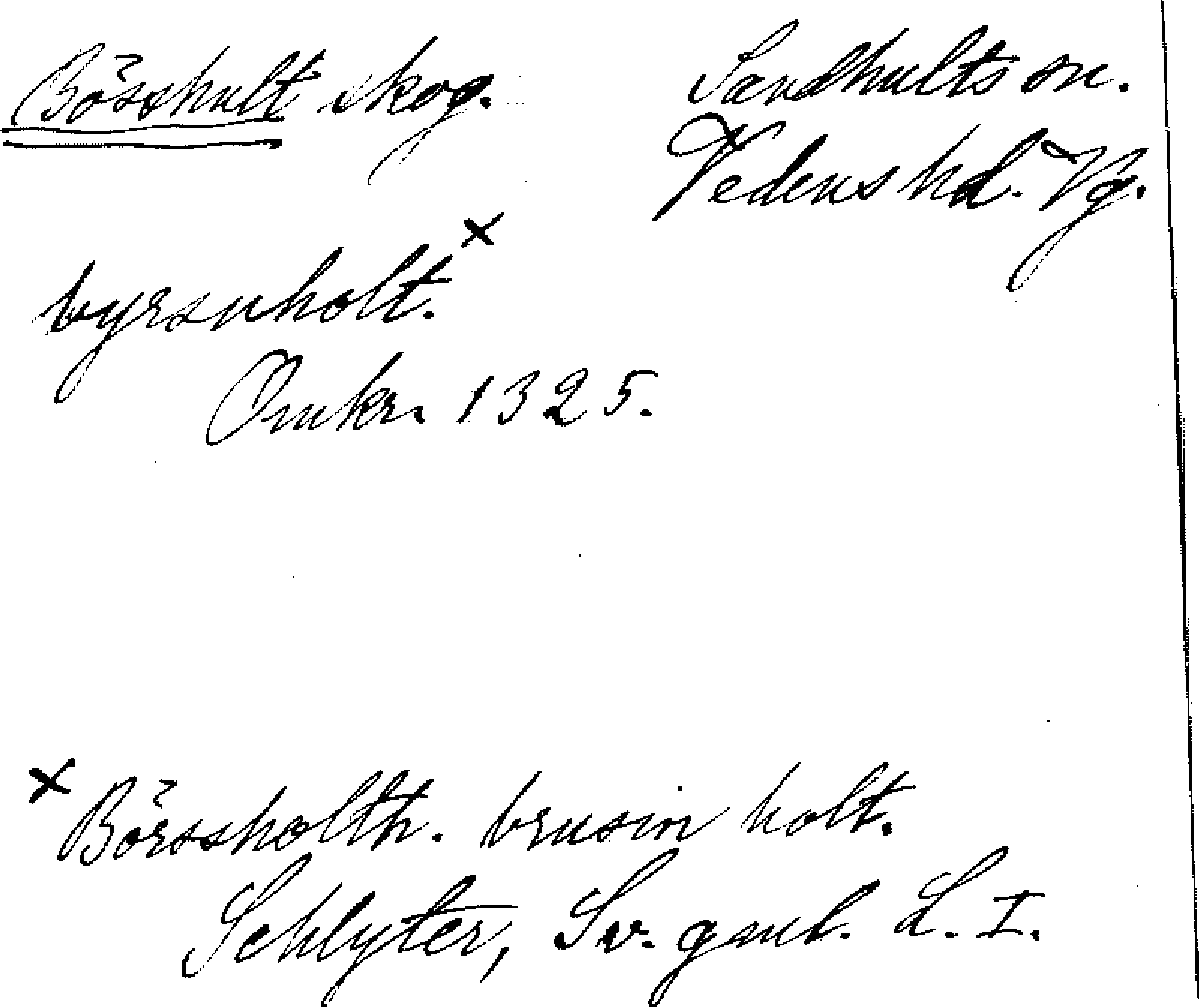 Bösshult skog.
Sandhults sn.
Vedens hd. Vg.
byrsnholt. x
Omkr. 1325.
x Börssholth. brusin holt.
Schlyter, Sv. gml. L. I.